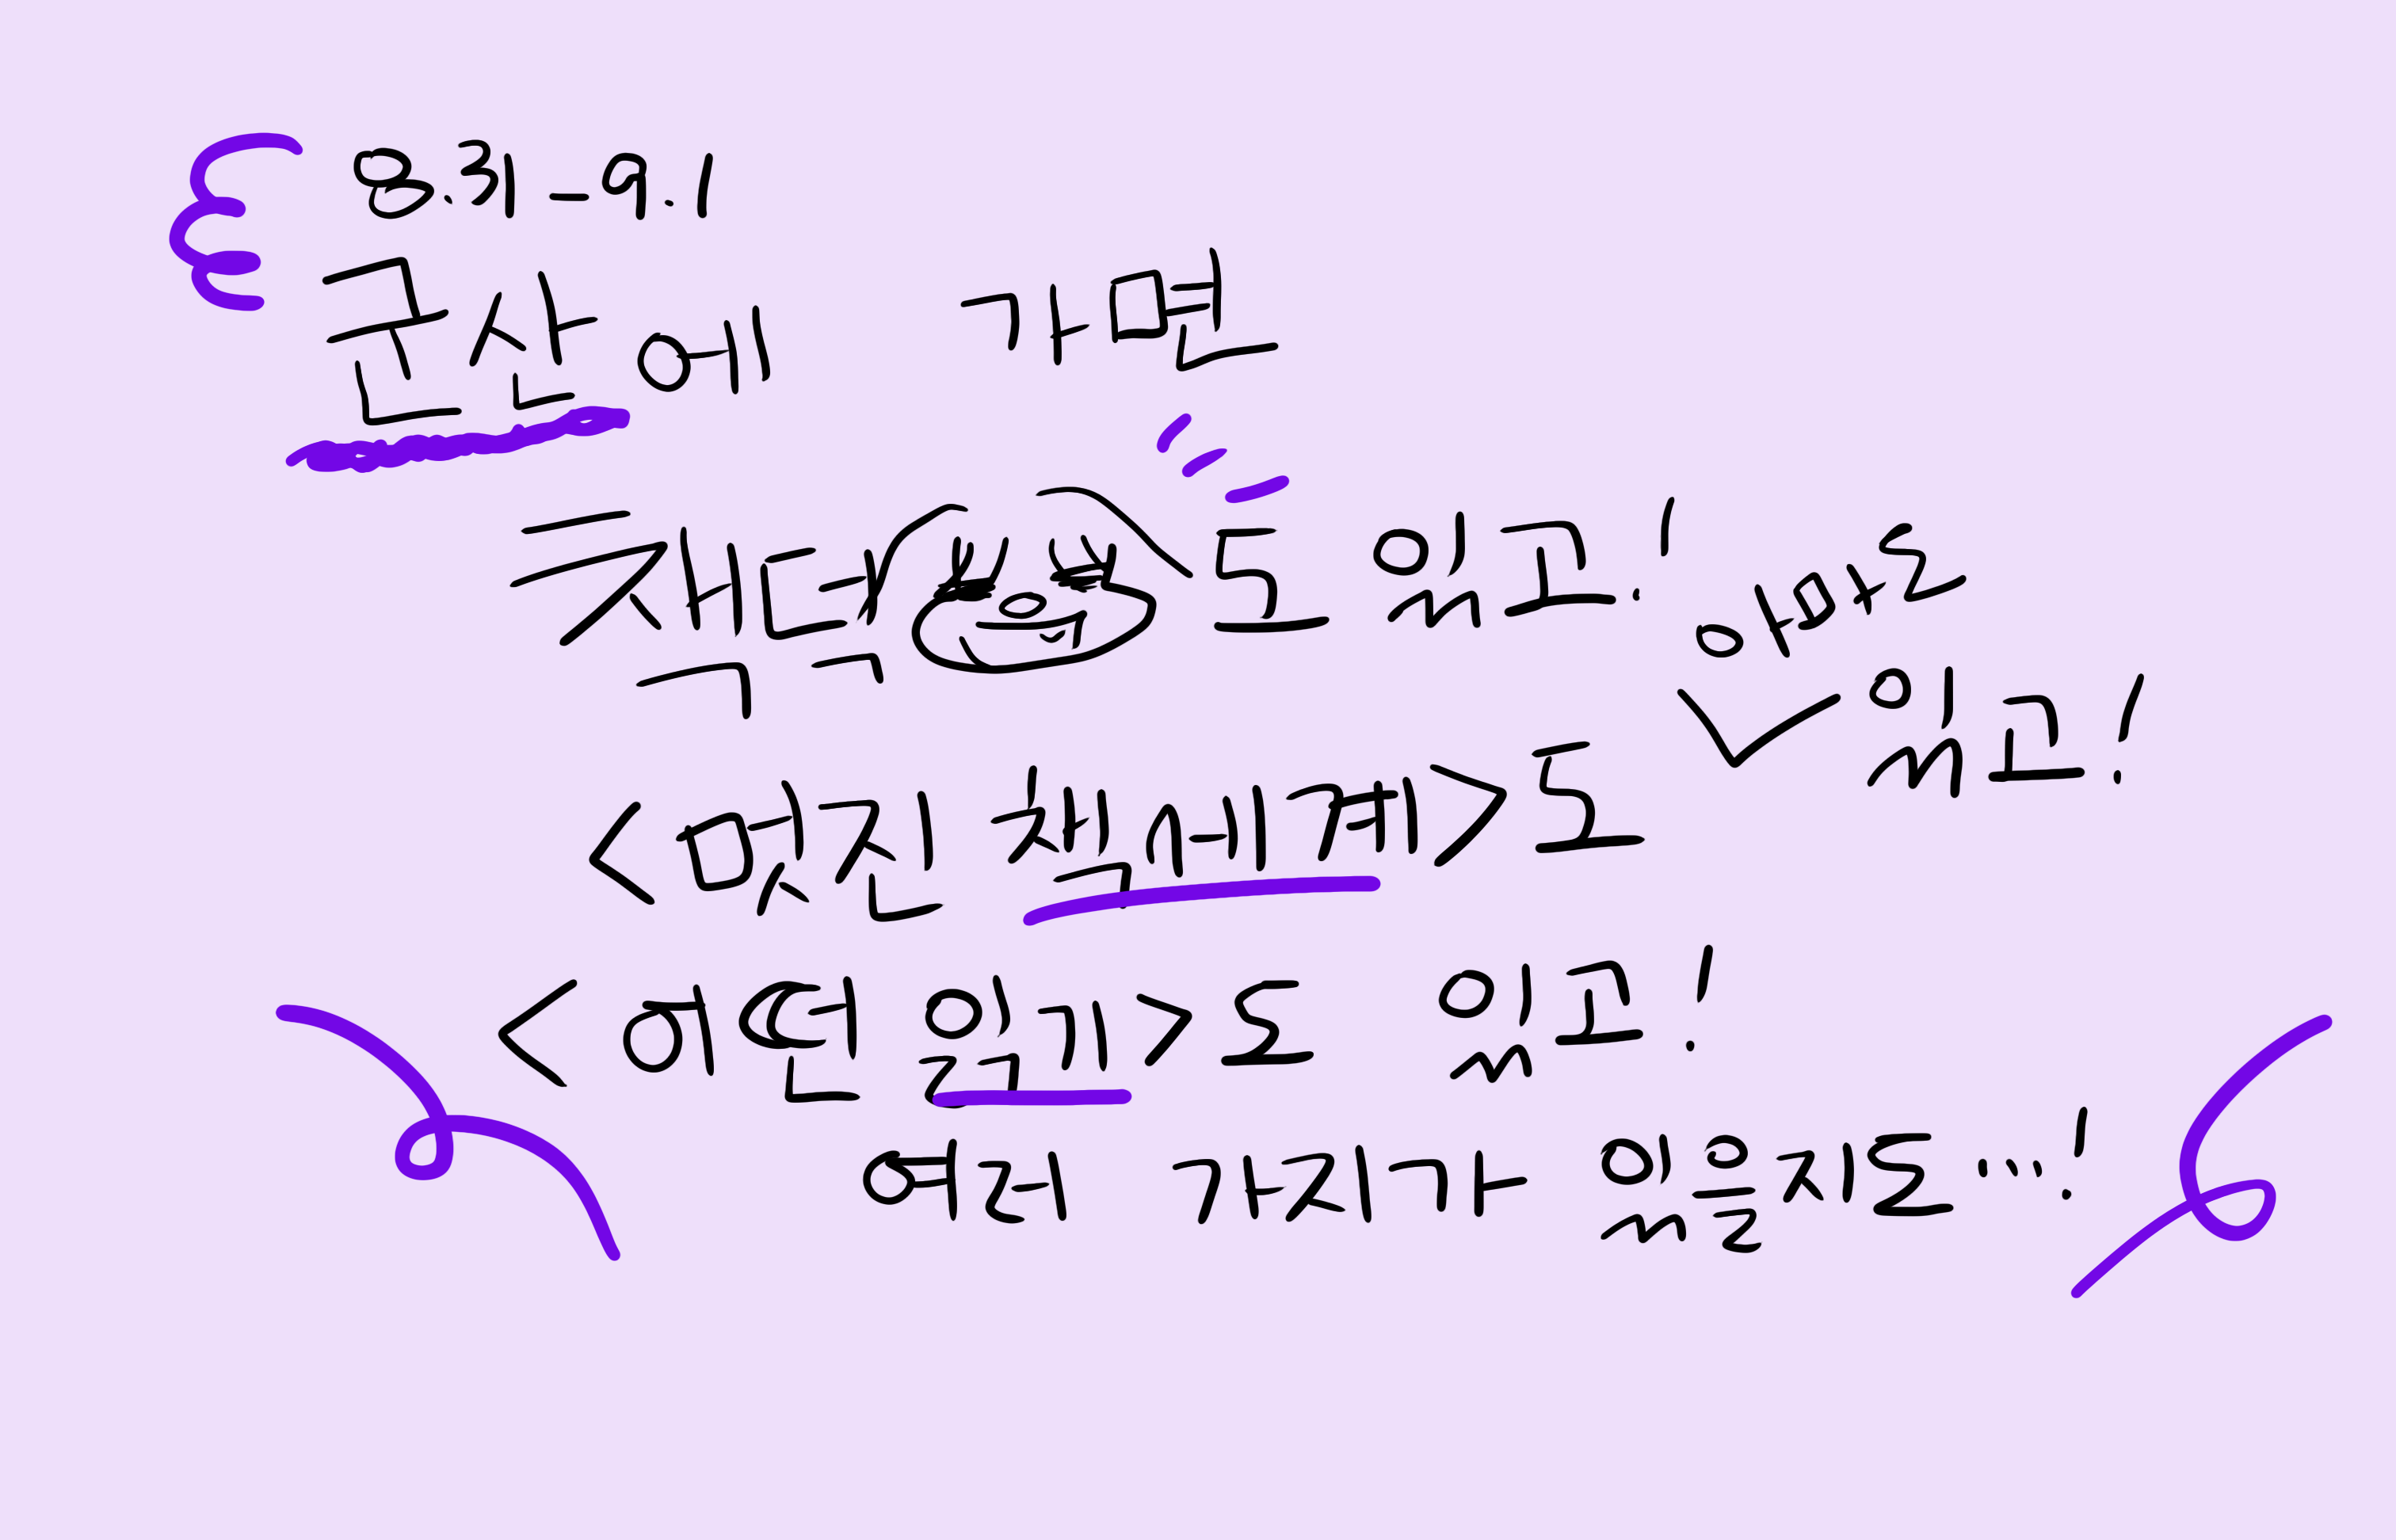 8.31-9.1
군산에 가면
책덕도 있고!
<멋진 책세계>도 아마도 있고!
<이면 읽기>도 있고!
여러 가지가 있을지도…!